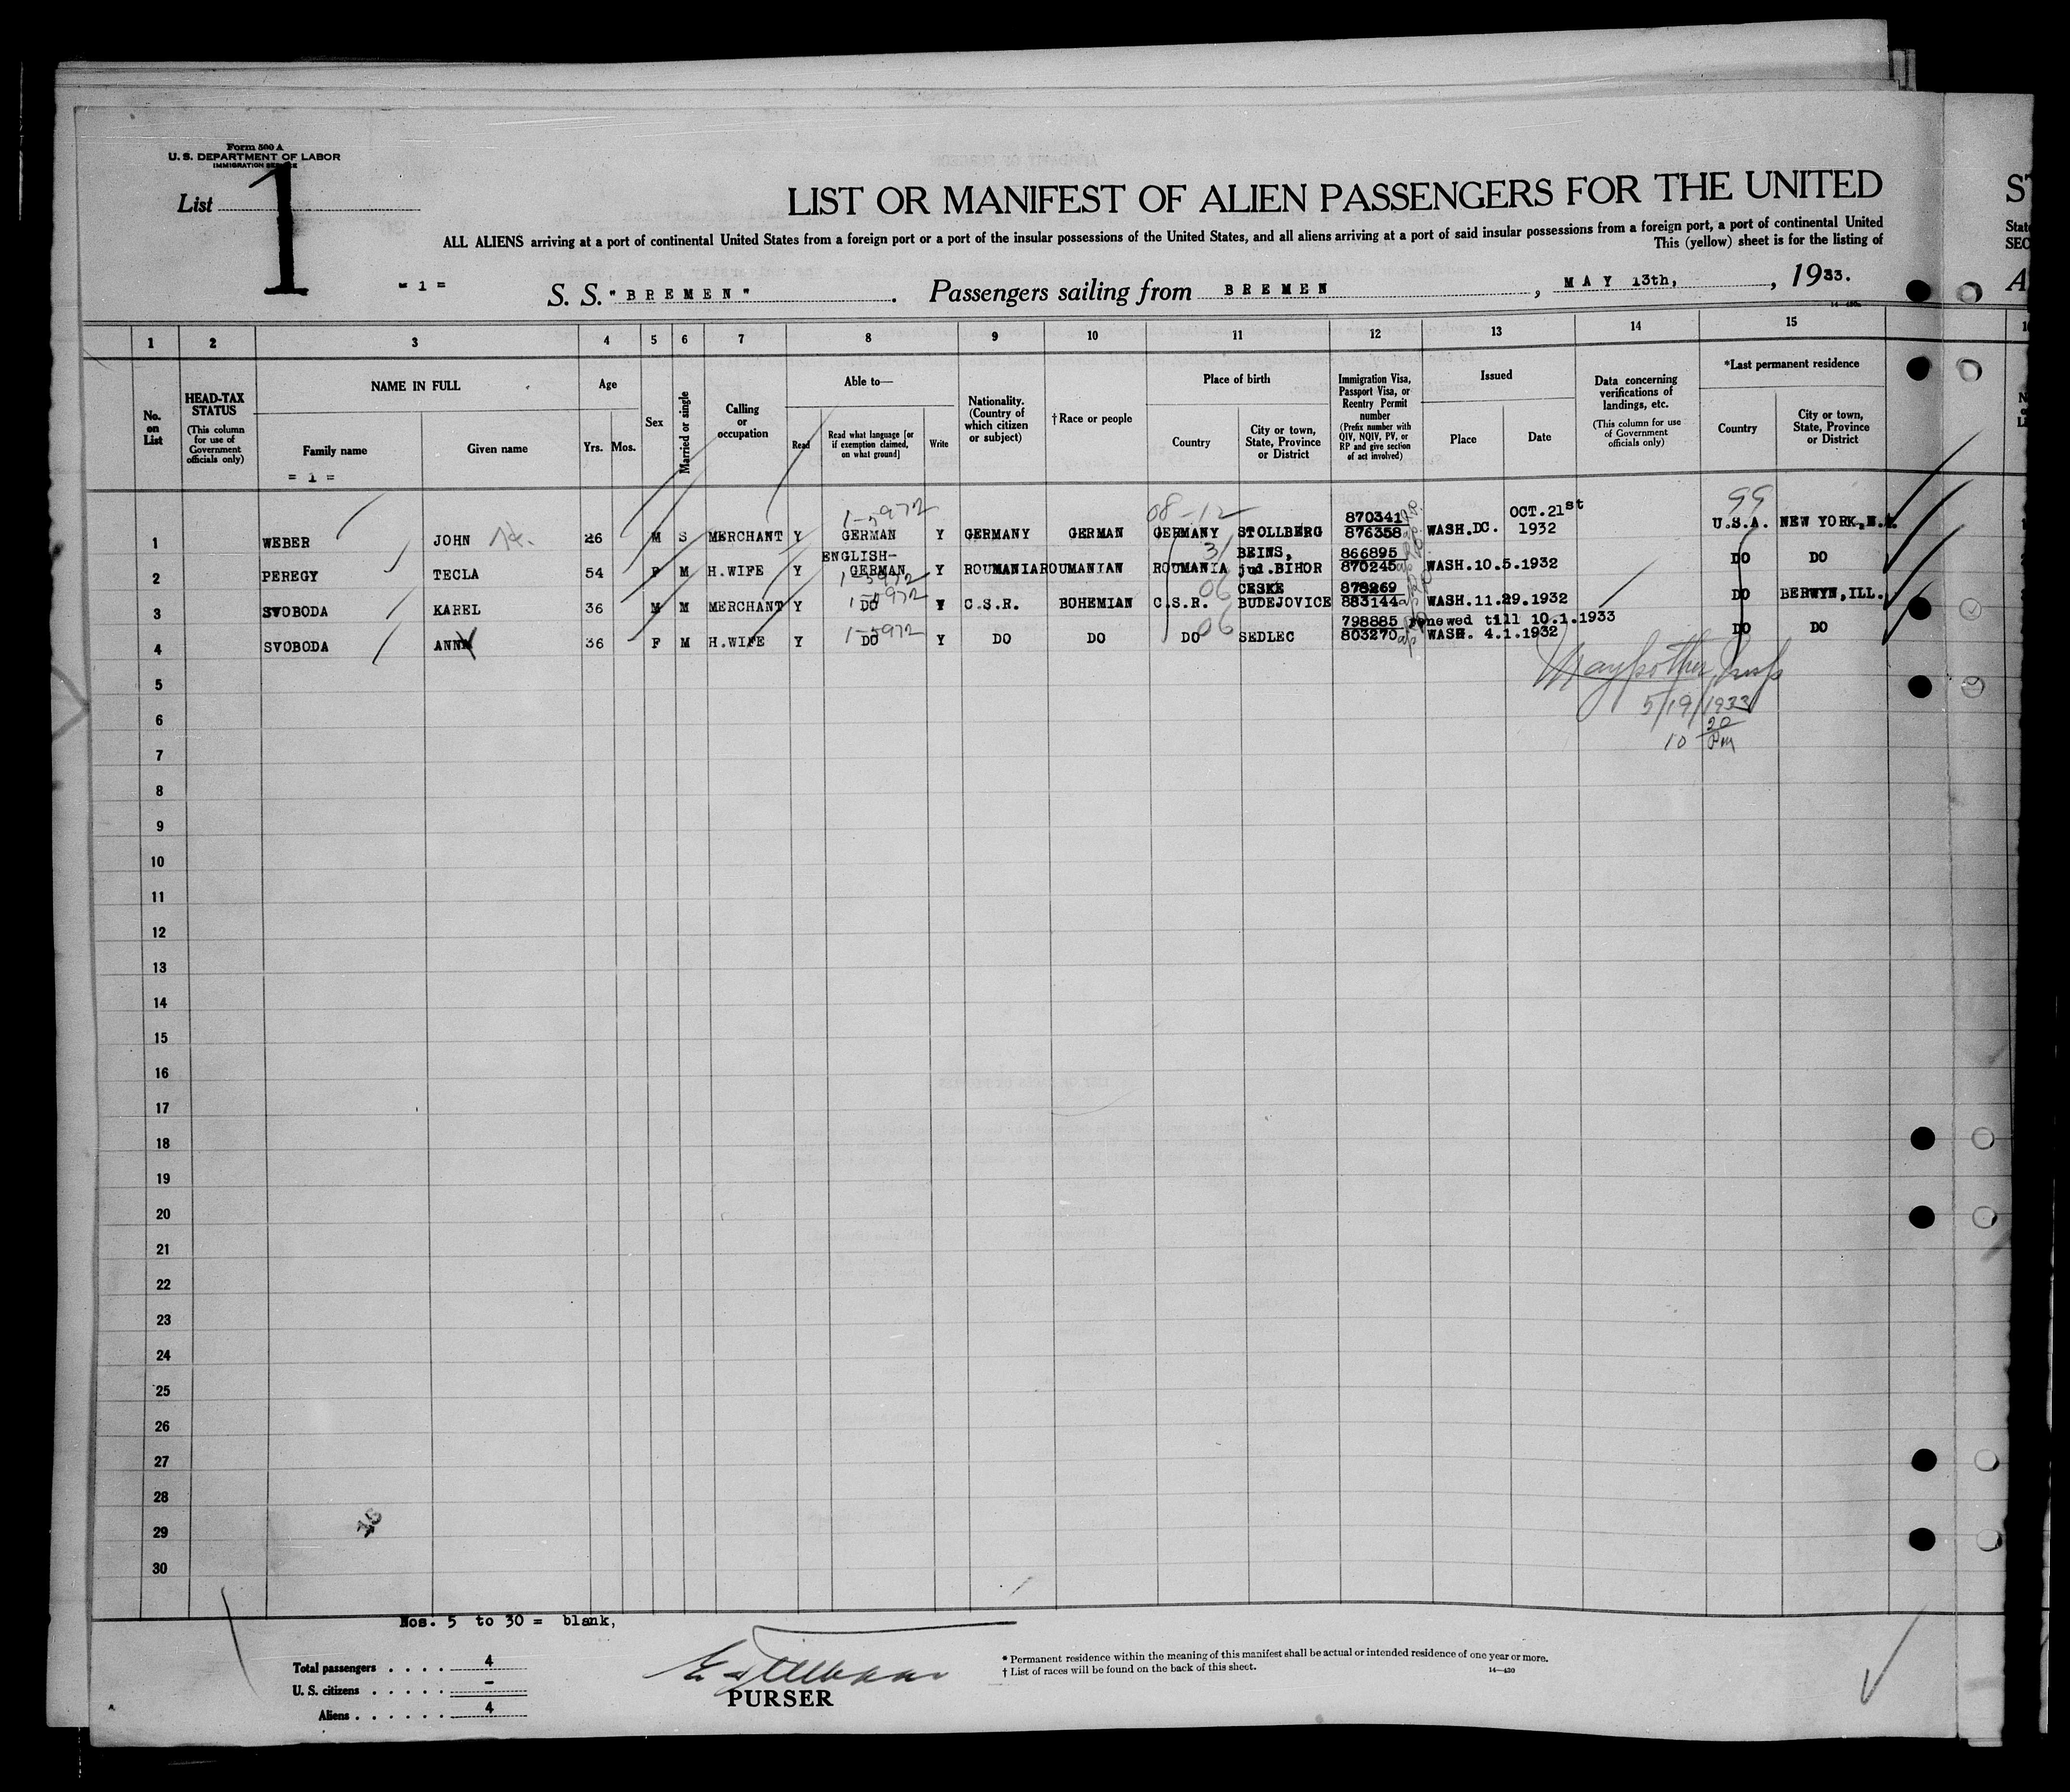 Form 500 A
U. S. DEPARTMENT OF LABOR
IMMIGRATION SERVICE
List 1
LIST OR MANIFEST OF ALIEN PASSENGERS FOR THE UNITED
ALL ALIENS arriving at a port of continental United States from a foreign port or a port of the insular possessions of the United States, and all aliens arriving at a port of said insular possessions from a foreign port, a port of continental United
This (yellow) sheet is for the listing of
= 1 = S. S. "BREMEN" . Passengers sailing from BREMEN , MAY 13th, , 1933.
1 2 3 4 5 6 7 8 9 10 11 12 13 14 15
No. on List
HEAD-TAX STATUS (This column for use of Government officials only)
NAME IN FULL
Family name Given name
= 1 =
Age
Yrs. Mos.
Sex
Married or single
Calling or occupation
Able to—
Read
Read what language [or if exemption claimed, on what ground]
Write
Nationality. (Country of which citizen or subject)
†Race or people
Place of birth
Country
City or town, State, Province or District
Immigration Visa, Passport Visa, or Reentry Permit number (Prefix number with QIV, NQIV, PV, or RP and give section of act involved)
Issued
Place Date
Data concerning verifications of landings, etc. (This column for use of Government officials only)
*Last permanent residence
Country
City or town, State, Province or District
08-12
99
1 WEBER JOHN 26 M S MERCHANT Y GERMAN Y GERMANY GERMAN GERMANY STOLLBERG 870341 876358 WASH.DC. OCT.21st 1932 U.S.A. NEW YORK,N.Y.
2 PEREGY TECLA 54 F M H.WIFE Y ENGLISH-GERMAN Y ROUMANIA ROUMANIAN ROUMANIA 31 BEINS, jud.BIHOR 866895 870245 WASH.10.5.1932 DO DO
3 SVOBODA KAREL 36 M M MERCHANT Y DO Y C.S.R. BOHEMIAN C.S.R. 06 CESKE BUDEJOVICE 878269 883144 WASH.11.29.1932 DO BERWYN,ILL.
4 SVOBODA ANNA 36 F M H.WIFE Y DO Y DO DO DO 06 SEDLEC 798885 803270 renewed till 10.1.1933 WASH. 4.1.1932 DO DO
5/19/1933
10 20 Pm
5
6
7
8
9
10
11
12
13
14
15
16
17
18
19
20
21
22
23
24
25
26
27
28
29
30
Nos. 5 to 30 = blank,
Total passengers . . . . 4
U. S. citizens . . . . . . -
Aliens . . . . . . 4
PURSER
* Permanent residence within the meaning of this manifest shall be actual or intended residence of one year or more.
† List of races will be found on the back of this sheet.
14—430